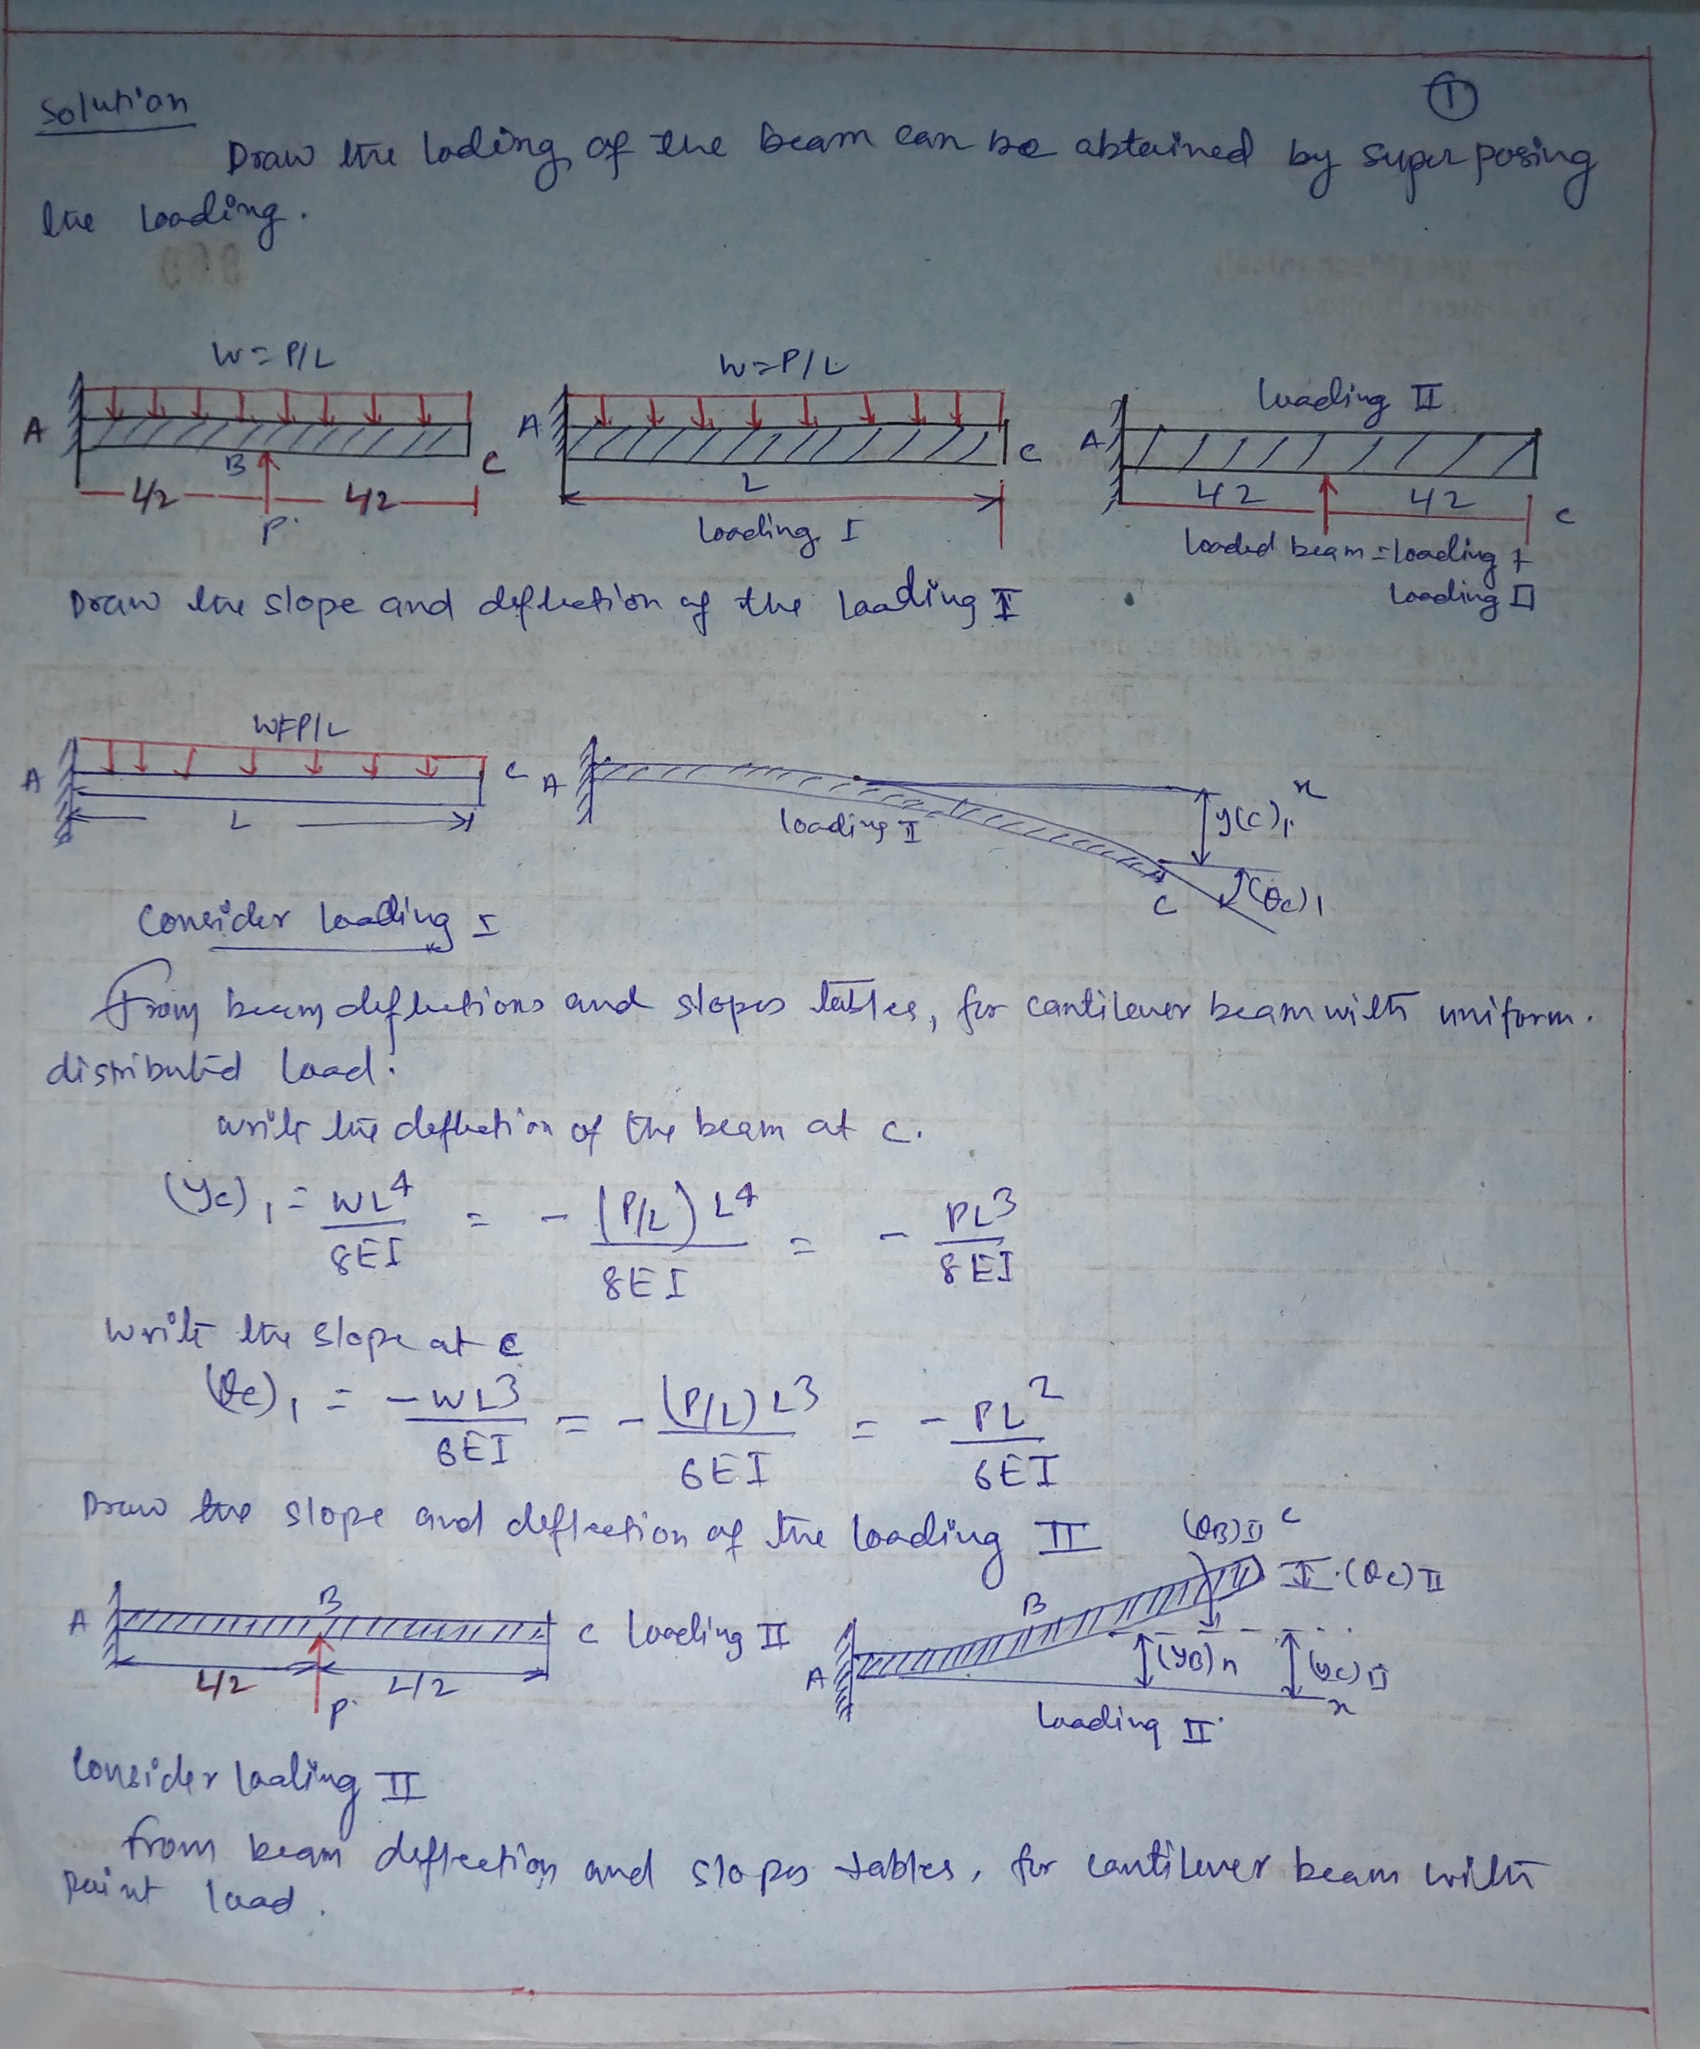 ①
Solution
Draw the loding of the beam can be obtained by super posing
the loading.
W = P/L
A
B
C
L/2
L/2
P.
W=P/L
A
C
L
loading I
loading II
A
L/2
L/2
C
Loaded beam = loading I
Loading II
Draw the slope and deflection of the loading I
W=P/L
A
C
L
A
x
y(c)1
loading I
C
(θc)1
Consider loading I
From beam deflections and slopes tables, for cantilever beam with uniform.
distributed load.
write the deflection of the beam at c.
(yc)1 = WL^4/8EI = -(P/L)L^4/8EI = -PL^3/8EI
Write the slope at c
(θc)1 = -WL^3/6EI = -(P/L)L^3/6EI = -PL^2/6EI
Draw the slope and deflection of the loading II
A
B
C
Loading II
L/2
L/2
P.
(θB)II
C
(θc)II
B
A
(yB)II
(yc)II
x
Loading II
Consider loading II
from beam deflection and slopes tables, for cantilever beam with
point load.